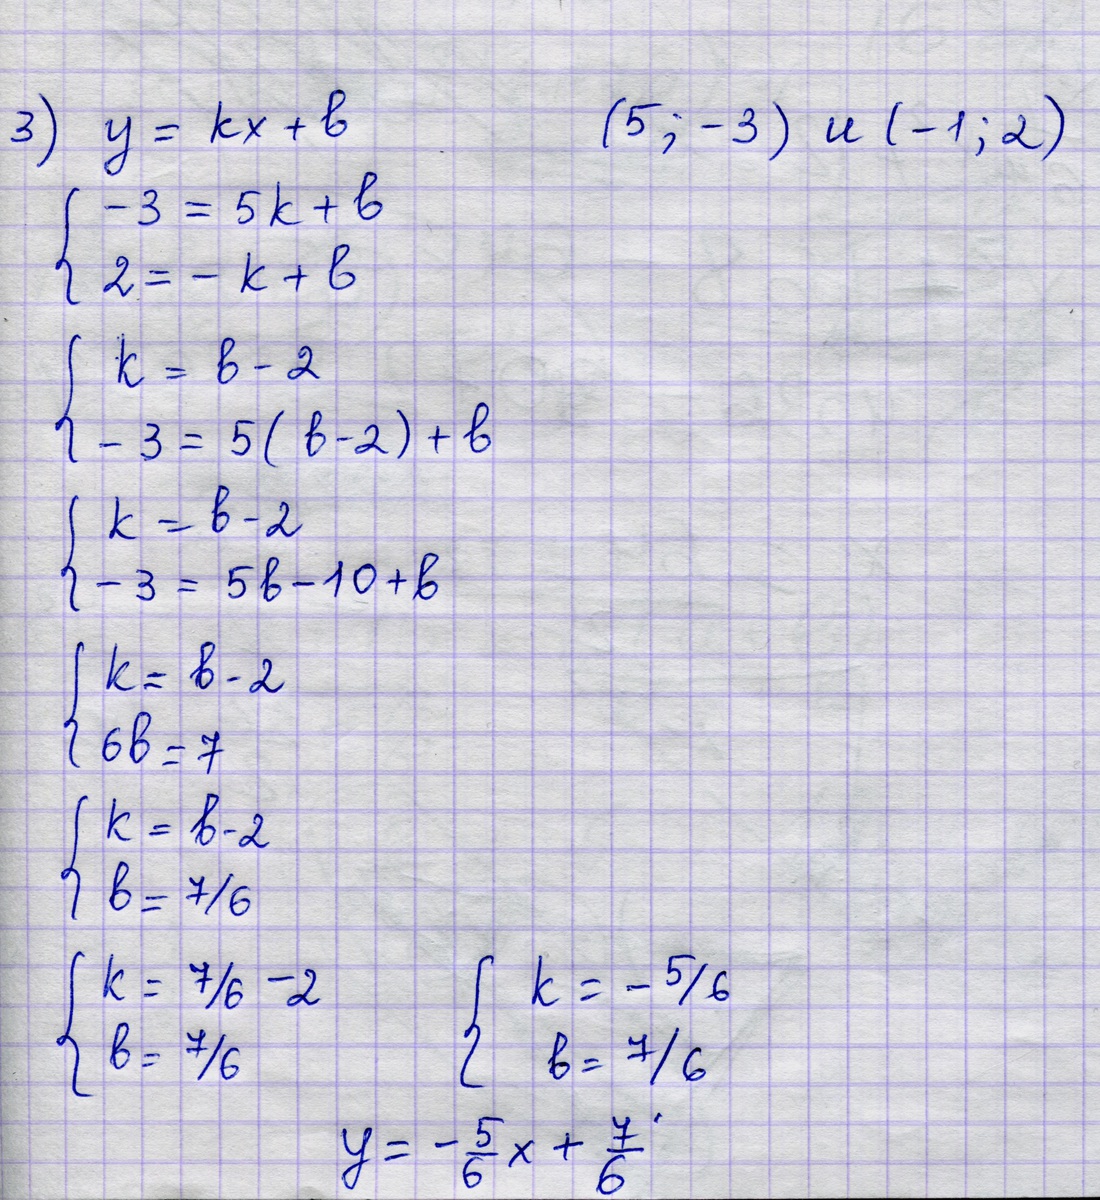 3) y = kx + b (5; -3) и (-1; 2)
-3 = 5k + b
2 = - k + b
k = b - 2
- 3 = 5( b - 2) + b
k = b - 2
- 3 = 5b - 10 + b
k = b - 2
6b = 7
k = b - 2
b = 7/6
k = 7/6 - 2 k = - 5/6
b = 7/6 b = 7/6
y = - 5/6 x + 7/6